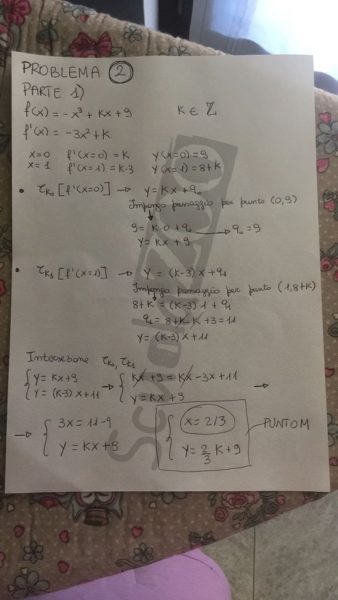 PROBLEMA 2
PARTE 1)
f(x) = -x³ + Kx + 9 K ∈ ℤ
f'(x) = -3x² + K
x=0 f'(x=0) = K y(x=0) = 9
x=1 f'(x=1) = K-3 y(x=1) = 8+K
• τK₀ [f'(x=0)] → y = Kx + q₀
Impongo passaggio per punto (0,9)
9 = K·0 + q₀ → q₀ = 9
y = Kx + 9
• τK₁ [f'(x=1)] → y = (K-3)x + q₁
Impongo passaggio per punto (1,8+K)
8+K = (K-3)1 + q₁
q₁ = 8+K-K+3 = 11
y = (K-3)x + 11
Intersezione τK₀, τK₁
{ y = Kx+9 → { Kx + 9 = Kx - 3x + 11 →
y = (K-3)x + 11 y = Kx + 9
→ { 3x = 11-9 { x = 2/3 PUNTO M
y = Kx+9 y = 2/3 K + 9